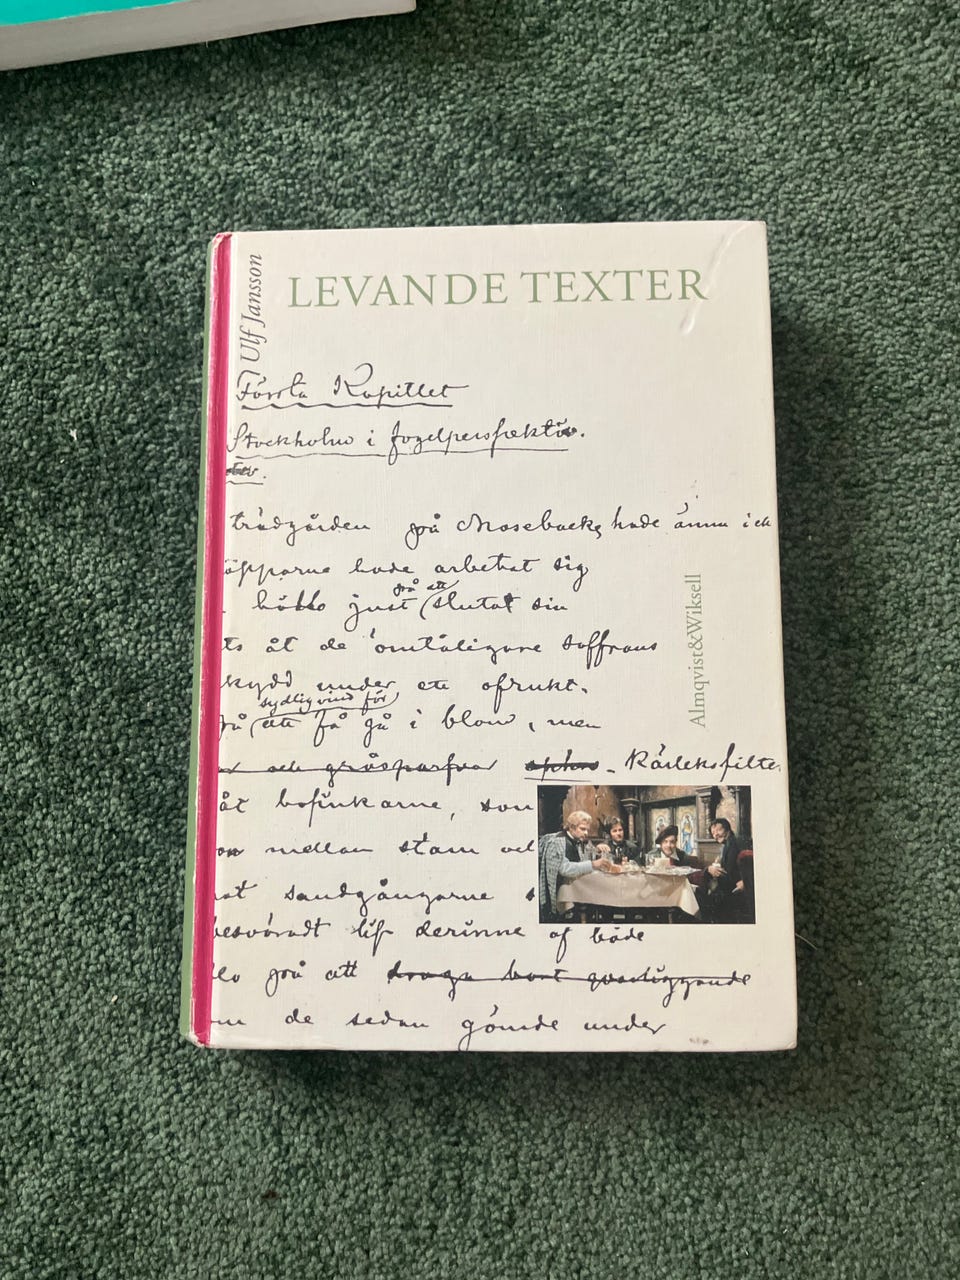 Ulf Jansson
LEVANDE TEXTER
Första Kapitlet
Stockholm i fogelperspektiv.
trädgården på Mosebacke hade ännu ick
äpparne hade arbetat sig
hålla just på att slutat sin
ts åt de ömtåligare saffrans
kydd under ett
sydlig vind för
på att få gå i blom, men
och gråsparfvar - Kärleksfilte
åt bofinkarne, som
mellan stam och
at sandgångarne s
besväradt lif derinne af både
på att draga bort qvarliggande
de sedan gömde under
Almqvist&Wiksell